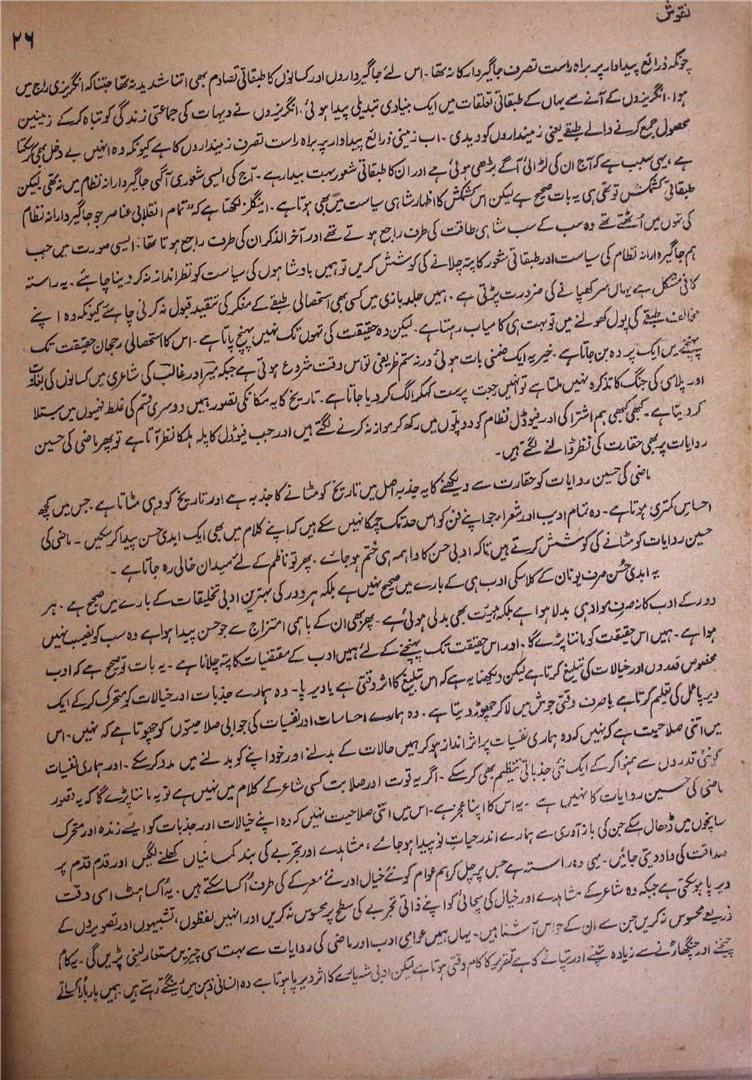 نقوش
۲۶
چونکہ ذرائع پیداوار پر براہ راست تصرف جاگیردار کا نہ تھا۔ اس لئے جاگیرداروں اور کسانوں کا طبقاتی تصادم بھی اتنا شدید نہ تھا جتنا کہ انگریزی راج میں
ہوا۔ انگریزوں کے آنے سے یہاں کے طبقاتی تعلقات میں ایک بنیادی تبدیلی پیدا ہوئی۔ انگریزوں نے دیہات کی جماعتی زندگی کو تباہ کر کے زمینیں
محصول جمع کرنے والے طبقے یعنی زمینداروں کو دیدی۔ اب زمینی ذرائع پیداوار پر براہ راست تصرف زمینداروں کا ہے کیونکہ وہ انہیں بے دخل بھی کر سکتا
ہے، یہی سبب ہے کہ آج ان کی لڑائی آگے بڑھی ہوئی ہے اور ان کا طبقاتی شعور بہت بیدار ہے۔ آج کی ایسی شعوری آگہی جاگیردارانہ نظام میں نہ تھی لیکن
طبقاتی کشمکش تو تھی ہی یہ بات صحیح ہے لیکن اس کشمکش کا اظہار شاہی سیاست میں بھی ہوتا ہے۔ اینگلز لکھتا ہے کہ "تمام انقلابی عناصر جو جاگیردارانہ نظام
کی تہوں میں اُٹھتے تھے وہ سب کے سب شاہی طاقت کی طرف راجع ہوتے تھے اور آخر الذکر ان کی طرف راجع ہوتا تھا۔ ایسی صورت میں جب
ہم جاگیردارانہ نظام کی سیاست اور طبقاتی شعور کا پتہ چلانے کی کوشش کریں تو ہمیں بادشاہوں کی سیاست کو نظر انداز نہ کر دینا چاہئے۔ یہ راستہ
کافی مشکل ہے یہاں سر کھپانے کی ضرورت پڑتی ہے۔ ہمیں جلد بازی میں کسی بھی استحصالی طبقے کے مفکر کی تنقید قبول نہ کرنی چاہئے کیونکہ وہ اپنے
مخالف طبقے کی پول کھولنے میں تو بہت ہی کامیاب رہتا ہے۔ لیکن وہ حقیقت کی تہوں تک نہیں پہنچ پاتا ہے۔ اس کا استحصالی رجحان حقیقت تک
پہنچنے میں ایک پردہ بن جاتا ہے۔ خیر یہ ایک ضمنی بات ہوئی ورنہ ستم ظریفی تو اس وقت شروع ہوتی ہے جبکہ میر اور غالب کی شاعری میں کسانوں کی بغاوت
اور پلاسی کی جنگ کا تذکرہ نہیں ملتا ہے تو انہیں رجعت پرست کہہ کر الگ کر دیا جاتا ہے۔ تاریخ کا یہ مکانکی تصور ہمیں دوسری قسم کی غلط فہمیوں میں مبتلا
کر دیتا ہے۔ کبھی کبھی ہم اشتراکی اور فیوڈل نظام کو دو پلوں میں رکھ کر موازنہ کرنے لگتے ہیں اور جب فیوڈل کا پلہ ہلکا نظر آتا ہے تو پھر ماضی کی حسین
روایات پر بھی حقارت کی نظر ڈالنے لگتے ہیں۔
ماضی کی حسین روایات کو حقارت سے دیکھنے کا یہ جذبہ اصل میں تاریخ کو مٹانے کا جذبہ ہے اور تاریخ کو وہی مٹاتا ہے۔ جس میں کچھ
احساس کمتری ہوتا ہے۔ وہ تمام ادیب اور شعراء جو اپنے فن کو اس حد تک چمکا نہیں سکے ہیں کہ اپنے کلام میں بھی ایک ابدی حسن پیدا کر سکیں۔ ماضی کی
حسین روایات کو مٹانے کی کوشش کرتے ہیں تاکہ ادبی حسن کا واہمہ ہی ختم ہو جائے۔ پھر تو ناظم کے لئے میدان خالی رہ جاتا ہے۔
یہ ابدی حُسن صرف یونان کے کلاسکی ادب ہی کے بارے میں صحیح نہیں ہے بلکہ ہر دور کی بہترین ادبی تخلیقات کے بارے میں صحیح ہے۔ ہر
دور کے ادب کا نہ صرف مواد ہی بدلا ہوا ہے بلکہ ہیئت بھی بدلی ہوئی ہے۔ پھر بھی ان کے باہمی امتزاج سے جو حسن پیدا ہوا ہے وہ سب کو نصیب نہیں
ہوا ہے۔ ہمیں اس حقیقت کو ماننا پڑے گا۔ اور اس حقیقت تک پہنچنے کے لئے ہمیں ادب کے مقتضیات کا پتہ چلانا ہے۔ یہ بات تو صحیح ہے کہ ادب
مخصوص قدروں اور خیالات کی تبلیغ کرتا ہے لیکن دیکھنا یہ ہے کہ اس تبلیغ کا اثر وقتی ہے یا دیرپا۔ وہ ہمارے جذبات اور خیالات کو متحرک کر کے ایک
دیرپا عمل کی تعلیم کرتا ہے یا صرف وقتی جوش میں لا کر چھوڑ دیتا ہے۔ وہ ہمارے احساسات اور نفسیات کی جوابی صلاحیتوں کو چھوتا ہے کہ نہیں۔ اس
میں اتنی صلاحیت ہے کہ نہیں کہ وہ ہماری نفسیات پر اثر انداز ہو کر ہمیں حالات کے بدلنے اور خود اپنے کو بدلنے میں مدد کر سکے۔ اور ہماری نفسیات
کو نئی قدروں سے ہمنوا کر کے ایک نئی جذباتی تنظیم بھی کر سکے۔ اگر یہ قوت اور صلابت کسی شاعر کے کلام میں نہیں ہے تو یہ ماننا پڑے گا کہ یہ قصور
ماضی کی حسین روایات کا نہیں ہے۔ یہ اس کا اپنا عجز ہے۔ اس میں اتنی صلاحیت نہیں کہ وہ اپنے خیالات اور جذبات کو ایسے زندہ اور متحرک
سانچوں میں ڈھال سکے جن کی یاد آوری سے ہمارے اندر حیات نو پیدا ہو جائے، مشاہدے اور تجربے کی بند کمانیاں کھلنے لگیں اور قدم قدم پر
صداقت کی داد دیتی جائیں۔ یہی وہ راستہ ہے جس پر چل کر ہم عوام کو نئے خیال اور نئے معرکے کی طرف اُکسا سکتے ہیں۔ یہ اُکساہٹ اسی وقت
دیرپا ہو سکتی ہے جبکہ وہ شاعر کے مشاہدے اور خیال کی سچائی کو اپنے ذاتی تجربے کی سطح پر محسوس نہ کریں اور انہیں لفظوں، تشبیہوں اور تصویروں کے
ذریعے محسوس نہ کریں جن سے ان کے حواس آشنا ہیں۔ یہاں ہمیں عوامی ادب اور ماضی کی روایات سے بہت سی چیزیں مستعار لینی پڑیں گی۔ یہ کام
چیخنے اور چنگھاڑنے سے زیادہ تپنے اور تپانے کا ہے تقریر کا کام وقتی ہوتا ہے لیکن ادبی شہپارے کا اثر دیرپا ہوتا ہے وہ انسانی ذہن میں رینگتے رہتے ہیں ہمیں بار بار اُکساتے